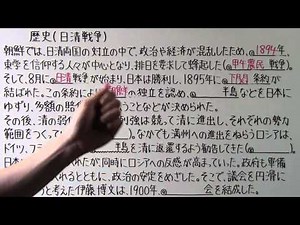 歴史(日清戦争)
朝鮮では、日清両国の対立の中で、政治や経済が混乱したため、1894年、
東学を信仰する人々が中心となり、排日を要求して蜂起した(甲午農民戦争)。
そして、8月に日清戦争が始まり、日本は勝利し、1895年に下関条約が
結ばれた。この条約により 朝鮮の独立を認め、 半島などを日本に
ゆずり、多額の賠 うことなどが決められた。
その後、清の弱 列強は競って清に進出し、それぞれの勢力
範囲をつく 。なかでも満州への進出をねらうロシアは、
ドイツ、フ 半島を清に返還するよう勧告してきた(
日本 れたが、同時にロシアへの反感が高まていた。政府も軍備
されるとともに、政治の安定をめざした。そこで、議会を円滑に
うと考えた伊藤博文は、1900年、 会を結成した。